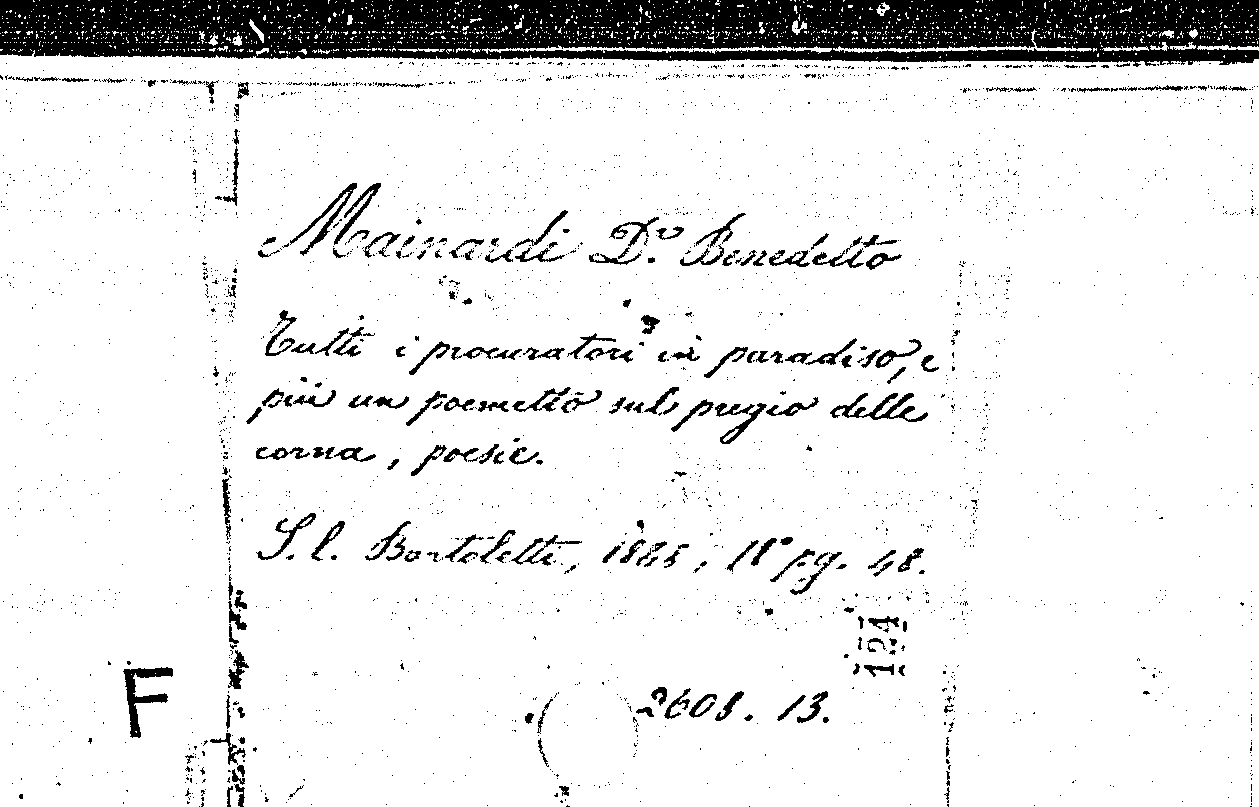 Mainardi D.r Benedetto
Tutti i procuratori in paradiso, e
più un poemetto sul pregio delle
corna, poesie.
S. l. Bortoletti, 18° pg. 48.
124
F
2608. 13.